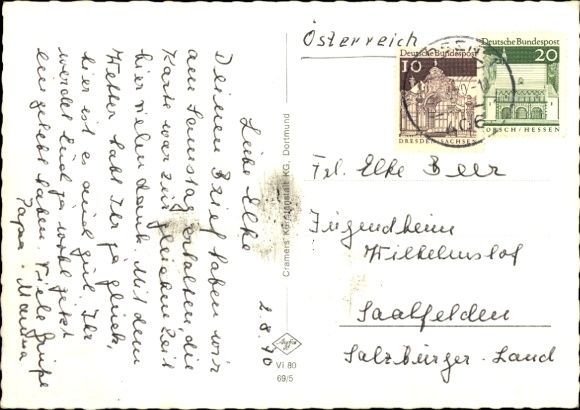 2.8.70
Liebe Elke
Deinen Brief haben wir
am Samstag erhalten die
Karte war zur gleichen Zeit
hier vielen dank. Mit dem
Wetter habt Ihr ja glück,
hier ist es auch gut. Ihr
werdet Euch ja wohl jetzt
eingelebt haben. Viele Grüße
Papa + Mama
Cramers Kunstanstalt KG, Dortmund
Agfa
Vi 80
69/5
Österreich
Deutsche Bundespost
10
DRESDEN-SACHSEN
Deutsche Bundespost
20
LORSCH/HESSEN
Frl. Elke Beer
Jugendheim
Wilhelmshof
Saalfelden
Salzburger-Land